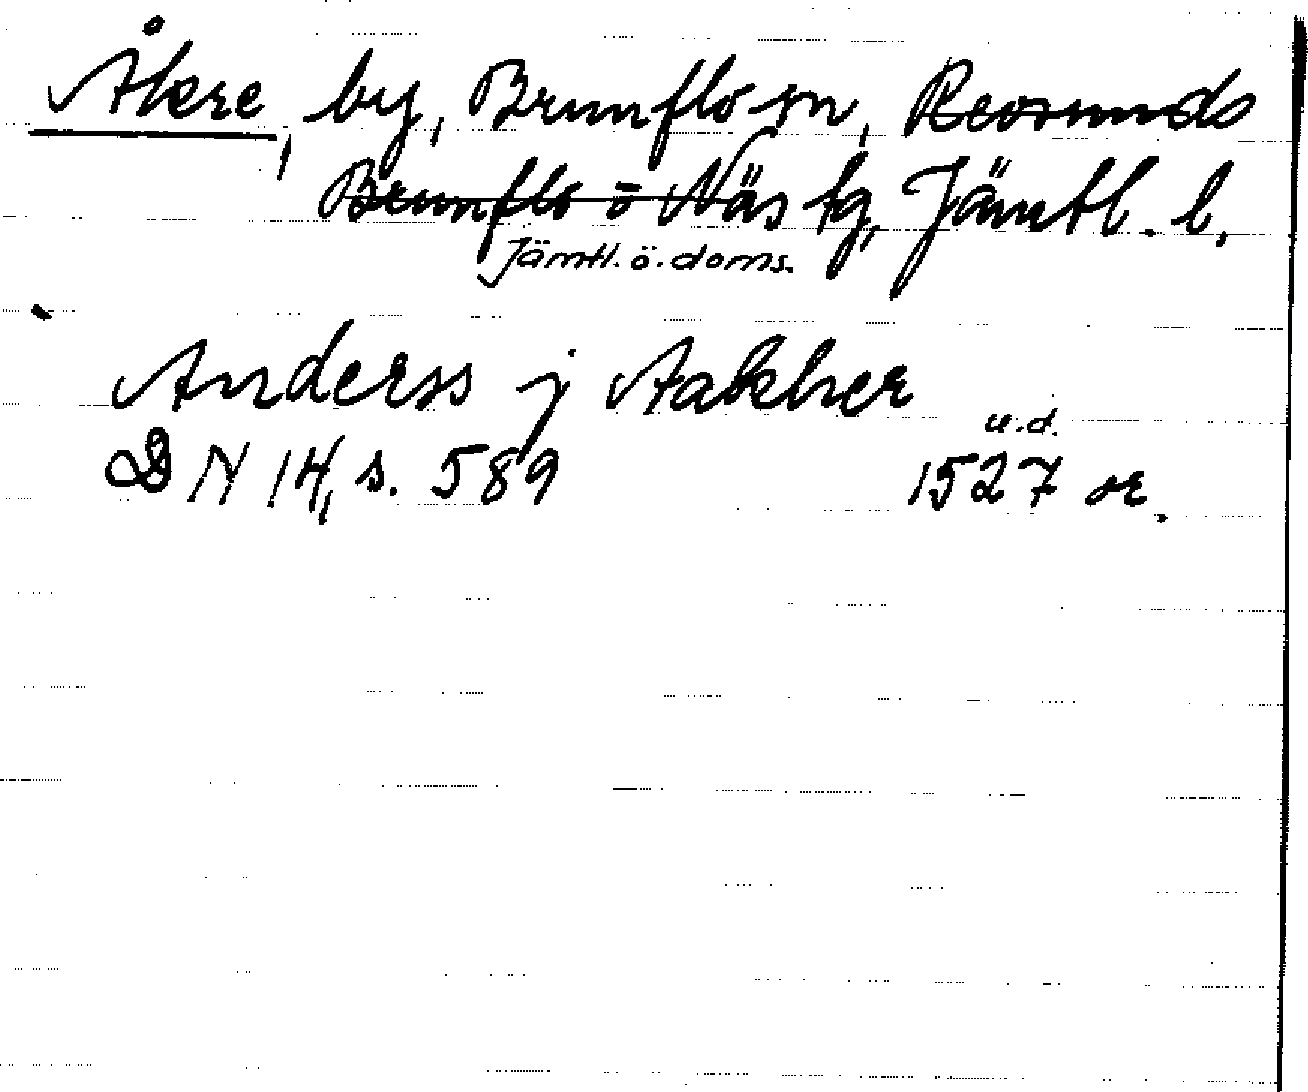 Åkre, by, Brunflo sn, Revsunds
Brunflo o Näs tg, Jämtl. l.
Jämtl. ö. doms.
Anderss j Aakher
u.d.
DN 14, s. 589 1527 or.